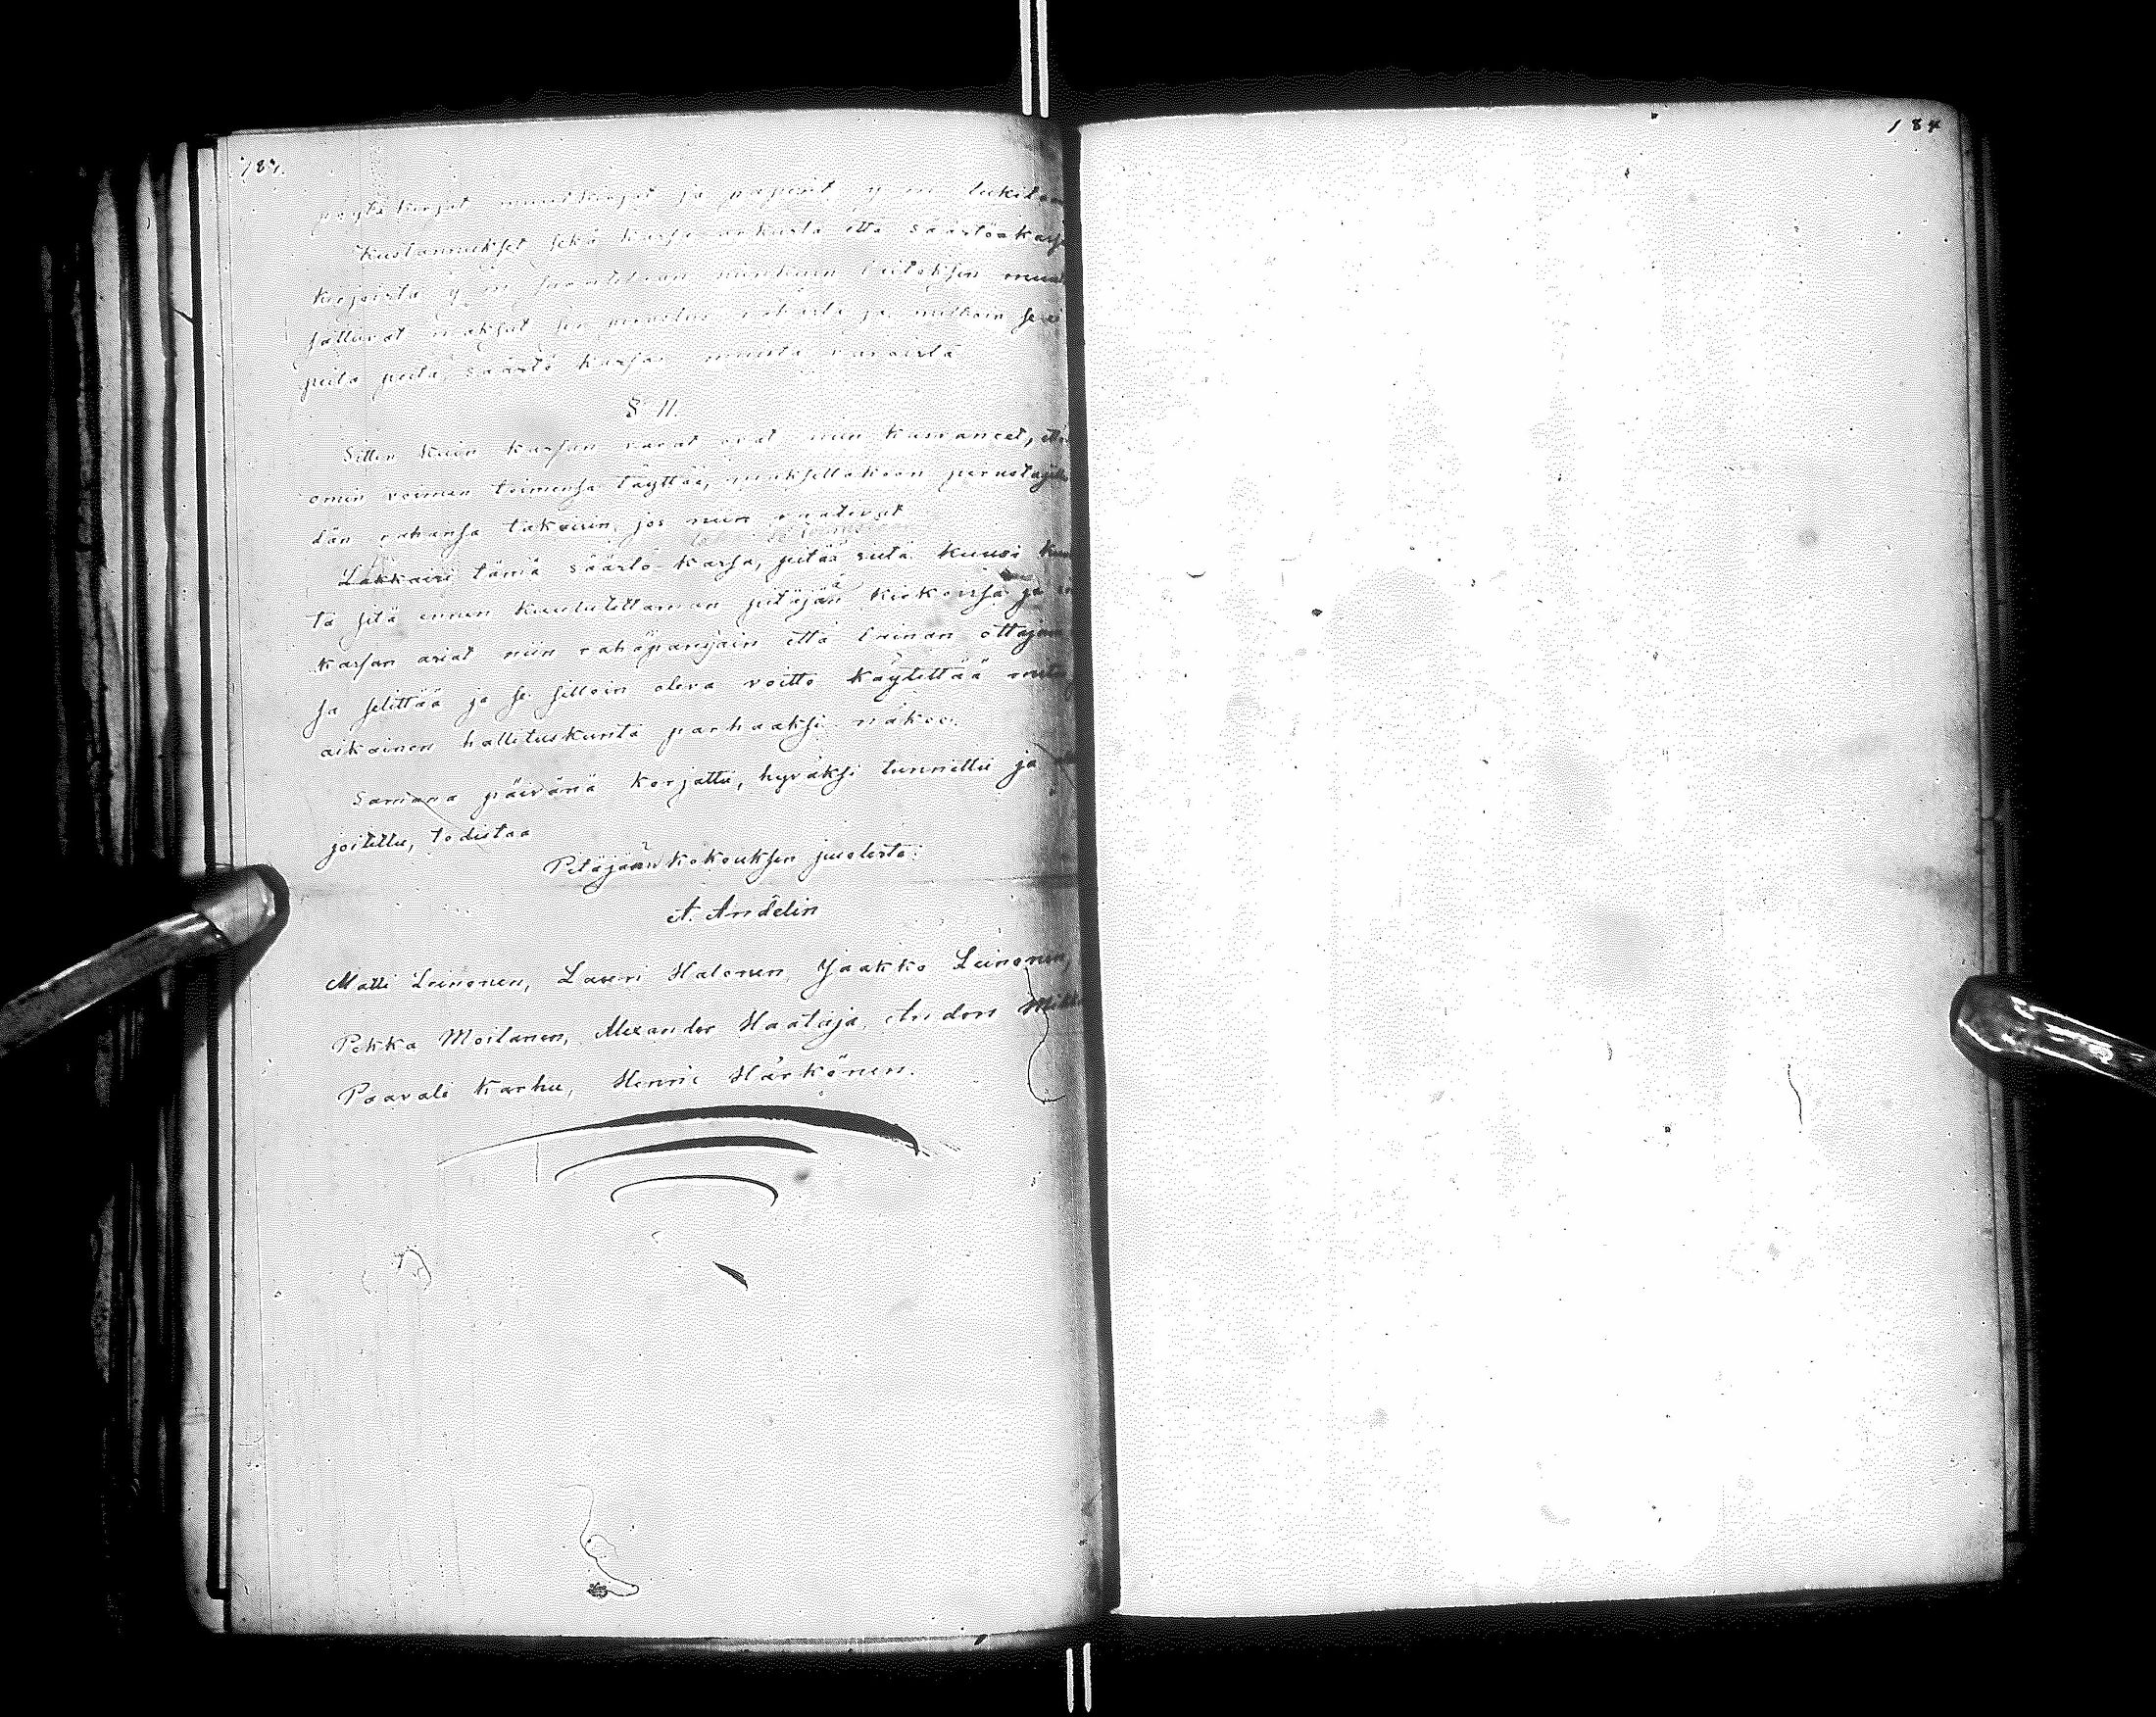 184
187.
pöytäkirjat muutkirjat ja paperit y m lukitaan
Kustannukset sekä Kassa-arkusta että säästöakassa
kirjoista y m suoritetaan niinkuin laitoksen muut
sattuvat maksut sen perustus rahasta ja milloin se ei
peitä peitä, säästö kassan muista varoista
§ 11.
Sitten kuin kassan varat ovat niin kasvaneet, että
omin voimin toimensa täyttää, maksettakoon perustajille
dän rahansa takaisin, jos niin vaativat
Lakkaisi tämä säästö-kassa, pitää siitä kuusi kuu
ta sitä ennen kuulutettaman pitäjän kirkoissa ja
kassan asiat niin rahapanijain että lainan ottajain
sa selittää ja se silloin oleva voitto käytettää
aikainen hallituskunta parhaaksi näkee.
Samana päivänä korjattu, hyväksi tunnettu ja
joitettu, todistaa
Pitäjäänkokouksen puolesta:
A. Andelin
Matti Leinonen, Lauri Halonen, Jaakko Leinonen,
Pekka Moilanen, Alexander Haataja, Andors Mikk
Paavali Karhu, Henric Härkönen.